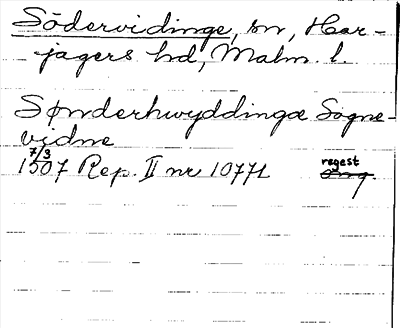 Södervidinge, sn, Har-
jagers hd, Malm. l.
Sønderhwyddingæ Sogne-
vidne
7/3
1507 Rep. II nr 10771
regest
orig.